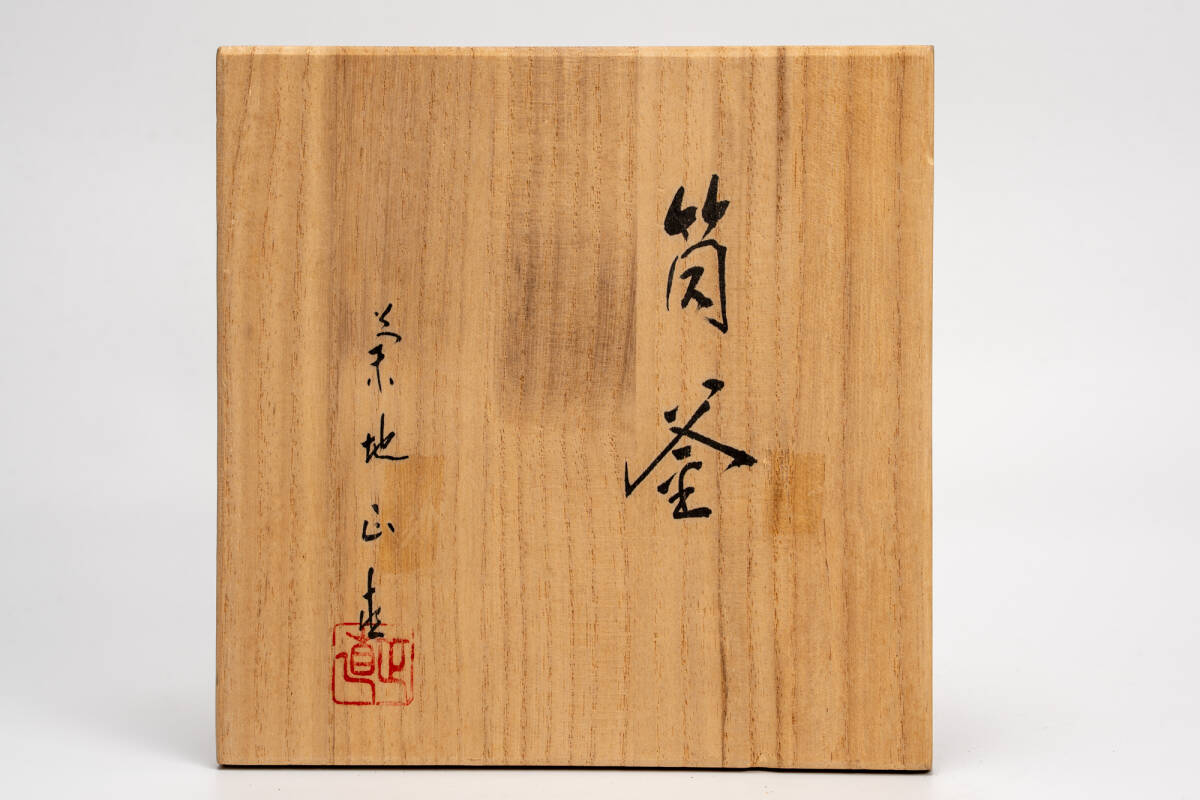 筒釜
菊地正直
正直